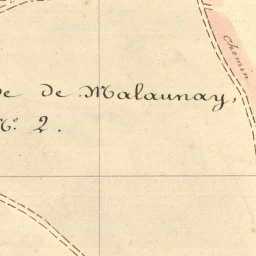 de de Malaunay,
N.º 2.
Chemin